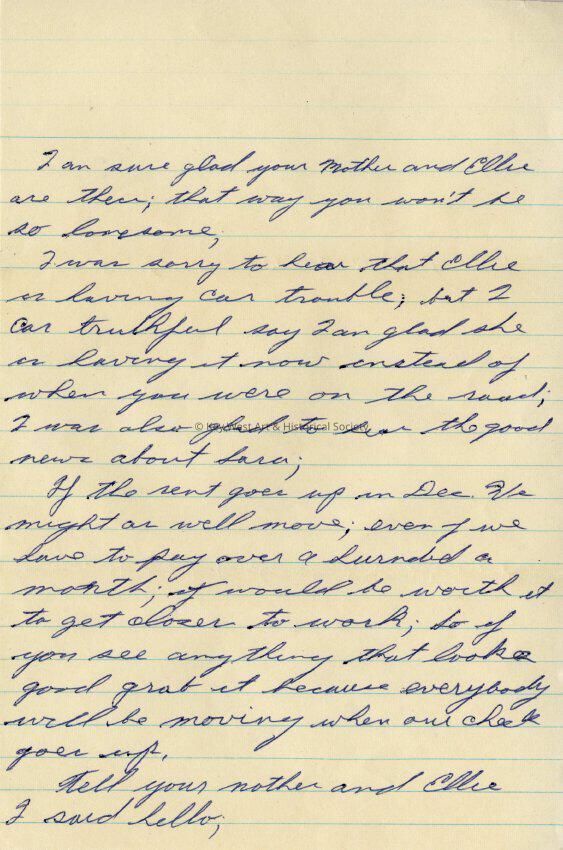 I am sure glad your Mother and Ellie
are there; that way you won't be
so lonesome;
I was sorry to hear that Ellie
is having car trouble; but I
can truthful say I am glad she
is having it now instead of
when you were on the road;
I was also glad to hear the good
© Key West Art & Historical Society
news about Sara;
If the rent goes up in Dec. We
might as well move; even if we
have to pay over a hundred a
month; it would be worth it
to get closer to work; so if
you see anything that looks
good grab it because everybody
will be moving when our check
goes up.
Tell your mother and Ellie
I said hello;